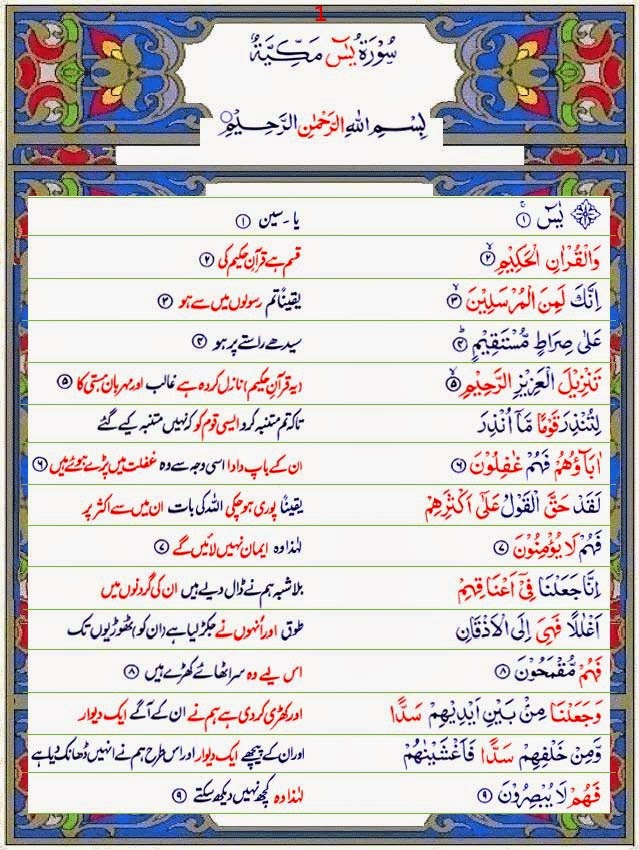 1
سُوْرَةُ يٰسٓ مَكِّيَّةٌ
بِسْمِ اللهِ الرَّحْمٰنِ الرَّحِيْمِ
يٰسٓ ۝١ یا۔سین ۝١
وَالْقُرْاٰنِ الْحَكِيْمِ ۝٢ قسم ہے قرآنِ حکیم کی ۝٢
اِنَّكَ لَمِنَ الْمُرْسَلِيْنَ ۝٣ یقیناً تم رسولوں میں سے ہو ۝٣
عَلٰى صِرَاطٍ مُّسْتَقِيْمٍ ۝٤ سیدھے راستے پر ہو ۝٤
تَنْزِيْلَ الْعَزِيْزِ الرَّحِيْمِ ۝٥ (یہ قرآنِ حکیم) نازل کردہ ہے غالب اور مہربان ہستی کا ۝٥
لِتُنْذِرَ قَوْمًا مَّاۤ اُنْذِرَ تاکہ تم متنبہ کرو ایسی قوم کو کہ نہیں متنبہ کیے گئے
اٰبَآؤُهُمْ فَهُمْ غٰفِلُوْنَ ۝٦ ان کے باپ دادا اسی وجہ سے وہ غفلت میں پڑے ہوئے ہیں ۝٦
لَقَدْ حَقَّ الْقَوْلُ عَلٰٓى اَكْثَرِهِمْ یقیناً پوری ہوچکی اللہ کی بات ان میں سے اکثر پر
فَهُمْ لَا يُؤْمِنُوْنَ ۝٧ لہٰذا وہ ایمان نہیں لائیں گے ۝٧
اِنَّا جَعَلْنَا فِيْٓ اَعْنَاقِهِمْ بلاشبہ ہم نے ڈال دیے ہیں ان کی گردنوں میں
اَغْلٰلًا فَهِيَ اِلَى الْاَذْقَانِ طوق اور اُنہوں نے جکڑ لیا ہے (ان کو) ٹھوڑیوں تک
فَهُمْ مُّقْمَحُوْنَ ۝٨ اس لیے وہ سر اٹھائے کھڑے ہیں ۝٨
وَجَعَلْنَا مِنْۢ بَيْنِ اَيْدِيْهِمْ سَدًّا اور کھڑی کردی ہے ہم نے ان کے آگے ایک دیوار
وَّمِنْ خَلْفِهِمْ سَدًّا فَاَغْشَيْنٰهُمْ اور ان کے پیچھے ایک دیوار اور اس طرح ہم نے انہیں ڈھانک دیا ہے
فَهُمْ لَا يُبْصِرُوْنَ ۝٩ لہٰذا وہ کچھ نہیں دیکھ سکتے ۝٩